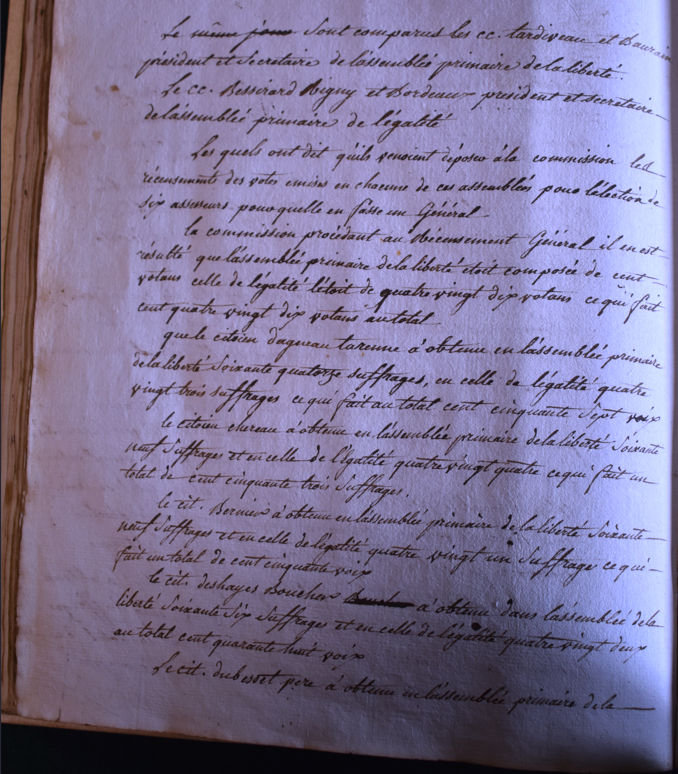 Le même jour Sont comparus les cc. tardiveau et Baurain
président et Secretaire de lassemblée primaire de la liberté.
Le cc. Bessirard Rigny et Bordeaux president et secretaire
de lassemblée primaire de légalité
Les quels ont dit quils venoient déposer à la commission les
récensements des votes emises en chacune de ces assemblées pour lélection de
six assesseurs pour quelle en fasse un Général
la commission procédant au Récensement Général il en est
résulté que lassemblée primaire de la liberté étoit composée de cent
votans celle de légalité létoit de quatre vingt dix votans ce qui fait
cent quatre vingt dix votans au total
que le citoien dagueau tarenne à obtenu en lassemblée primaire
de la liberté Soixante quatorze suffrages, en celle de légalité quatre
vingt trois suffrages ce qui fait au total cent cinquante Sept voix
le citoien chereau à obtenu en lassemblée primaire de la liberté Soixante
neuf Suffrages et en celle de légalité quatre vingt quatre ce qui fait un
total de cent cinquante trois Suffrages.
le cit. Bernier à obtenu en lassemblée primaire de la liberté Soixante
neuf Suffrages et en celle de légalité quatre vingt un Suffrage ce qui
fait un total de cent cinquante voix
le cit. deshayes Boucher à obtenu dans lassemblée de la
liberté Soixante Six Suffrages et en celle de légalité quatre vingt deux
au total cent quarante huit voix
Le cit. dubesset pere à obtenu en lassemblée primaire de la